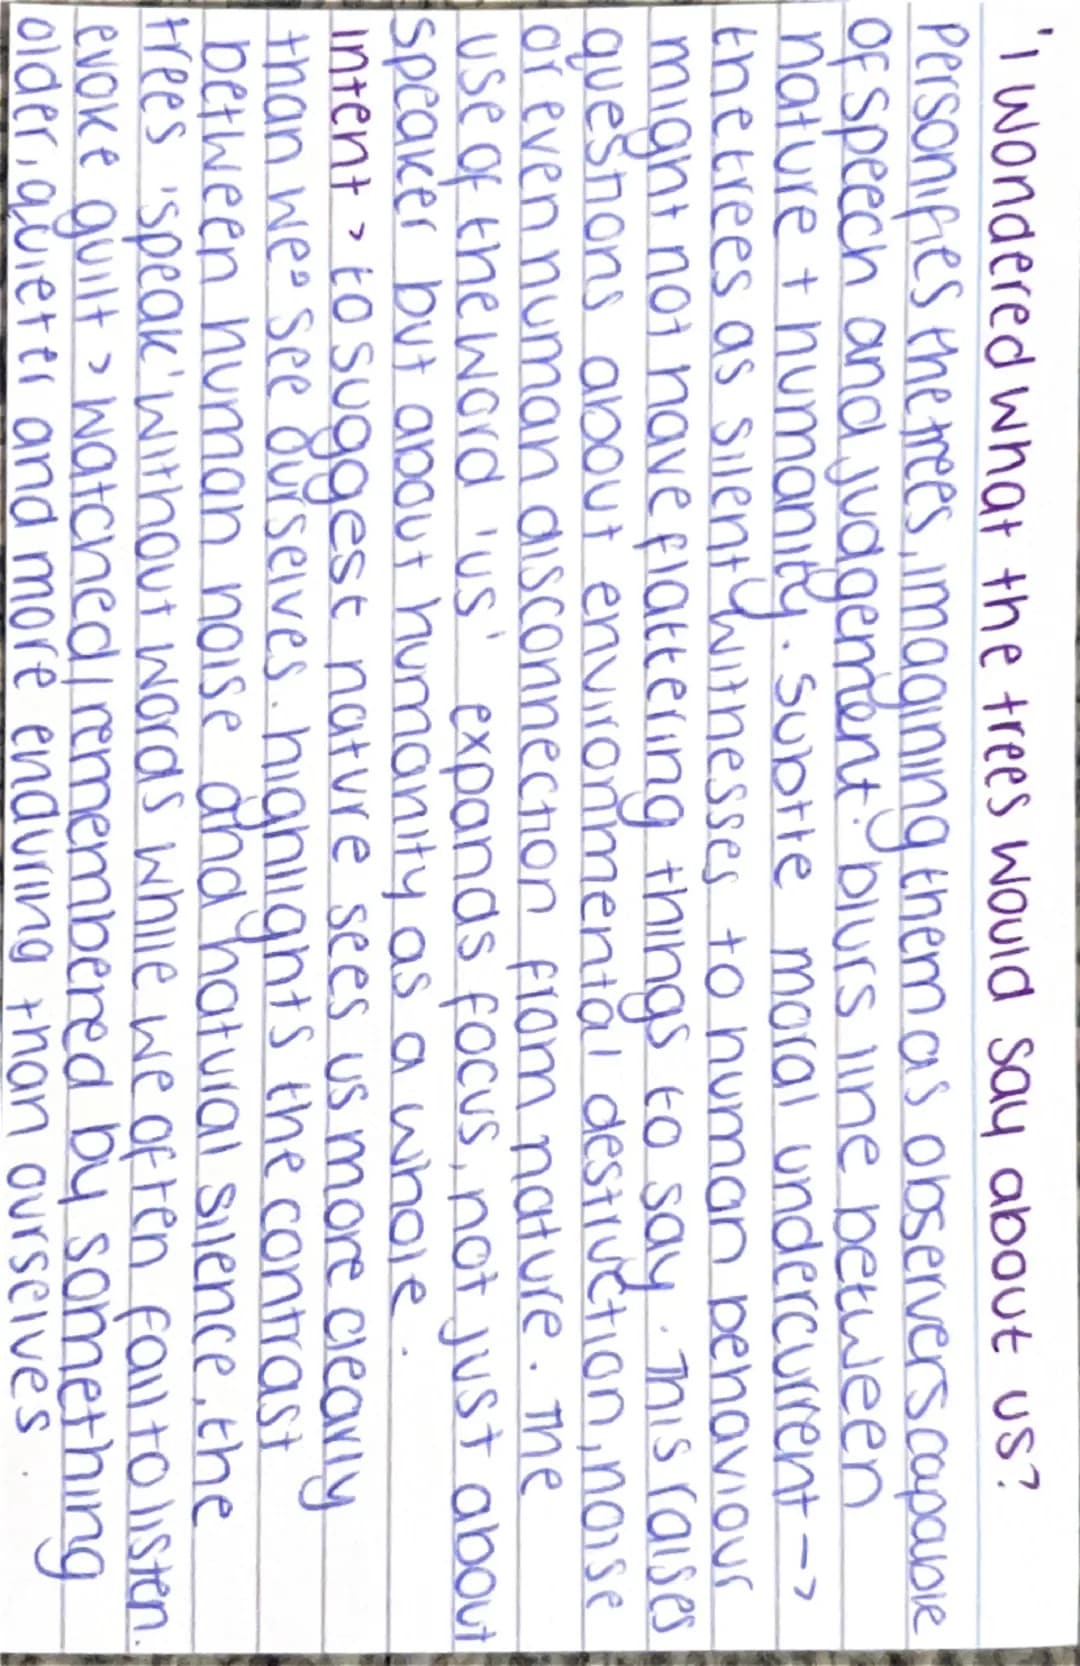 'I wondered what the trees would say about us?
Personifies the trees, imagining them as observers capable
of speech and judgement. blurs line between
nature + humanity. Subtle moral undercurrent →
the trees as silent witnesses to human behaviour
might not have flattering things to say. This raises
questions about environmental destruction, noise
or even human disconnection from nature. The
use of the word 'us' expands focus, not just about
speaker but about humanity as a whole.
Intent > to suggest nature sees us more clearly
than we see ourselves. highlights the contrast
between human noise and natural silence, the
trees 'speak' without words while we often fail to listen.
evoke guilt > watched/remembered by something
older, quieter and more enduring than ourselves.